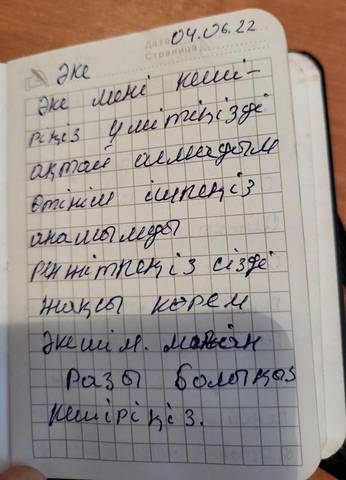 Дата 04.06.22
Страница
Әке
Әке мені кеші-
ріңіз үмітіңізді
ақтай алмадым
Өтінім ішпеңіз
анамымды
ренжітпеңіз сізді
жақсы көрем
Әкешім. маған
разы болыңыз
кешіріңіз.